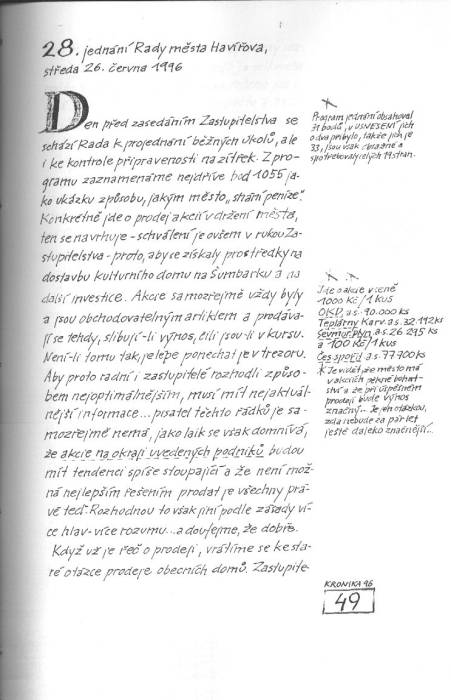 28. jednání Rady města Havířova,
středa 26. června 1996
Den před zasedáním Zastupitelstva se
schází Rada k projednání běžných úkolů, ale
i ke kontrole připravenosti na zítřek. Z pro-
gramu zaznamenáme nejdříve bod 1055 ja-
ko ukázku způsobu, jakým město „shání peníze".
Konkrétně jde o prodej akcií v držení města,
ten se navrhuje - schválení je ovšem v rukou Za-
stupitelstva - proto, aby se získaly prostředky na
dostavbu kulturního domu na Šumbarku a na
další investice. Akcie samozřejmě vždy byly
a jsou obchodovatelným artiklem a prodáva-
jí se tehdy, slibují-li výnos, čili jsou-li v kursu.
Není-li tomu tak, je lépe ponechat je v trezoru.
Aby proto radní i zastupitelé rozhodli způso-
bem nejoptimálnějším, musí mít nejaktuál-
nější informace... pisatel těchto řádků je sa-
mozřejmě nemá, jako laik se však domnívá,
že akcie na okraji uvedených podniků budou
mít tendenci spíše stoupající a že není mož-
ná nejlepším řešením prodat je všechny prá-
vě teď. Rozhodnou to však jiní podle zásady ví-
ce hlav - více rozumu... a doufejme, že dobře.
Když už je řeč o prodeji, vrátíme se ke sta-
ré otázce prodeje obecních domů. Zastupite-
Program jednání obsahoval
31 bodů, v USNESENÍ jich
o dva přibylo, takže jich je
33, jsou však obsažné a
spotřebovaly celých 19 stran.
Jde o akcie v ceně
1000 Kč/1 kus
OKD, a.s. - 90.000 ks
Teplárny Karv. a.s. 32.192 ks
Severomor. plyn. a.s. 26 295 ks
a 100 Kč/1 kus
Čes. spořit. a.s. 77 700 ks
Je vidět, že město má
v akciích pěkné bohat-
ství a že při úspěšném
prodeji bude výnos
značný... Je jen otázkou,
zda nebude za pár let
ještě daleko značnější...
KRONIKA 96
49